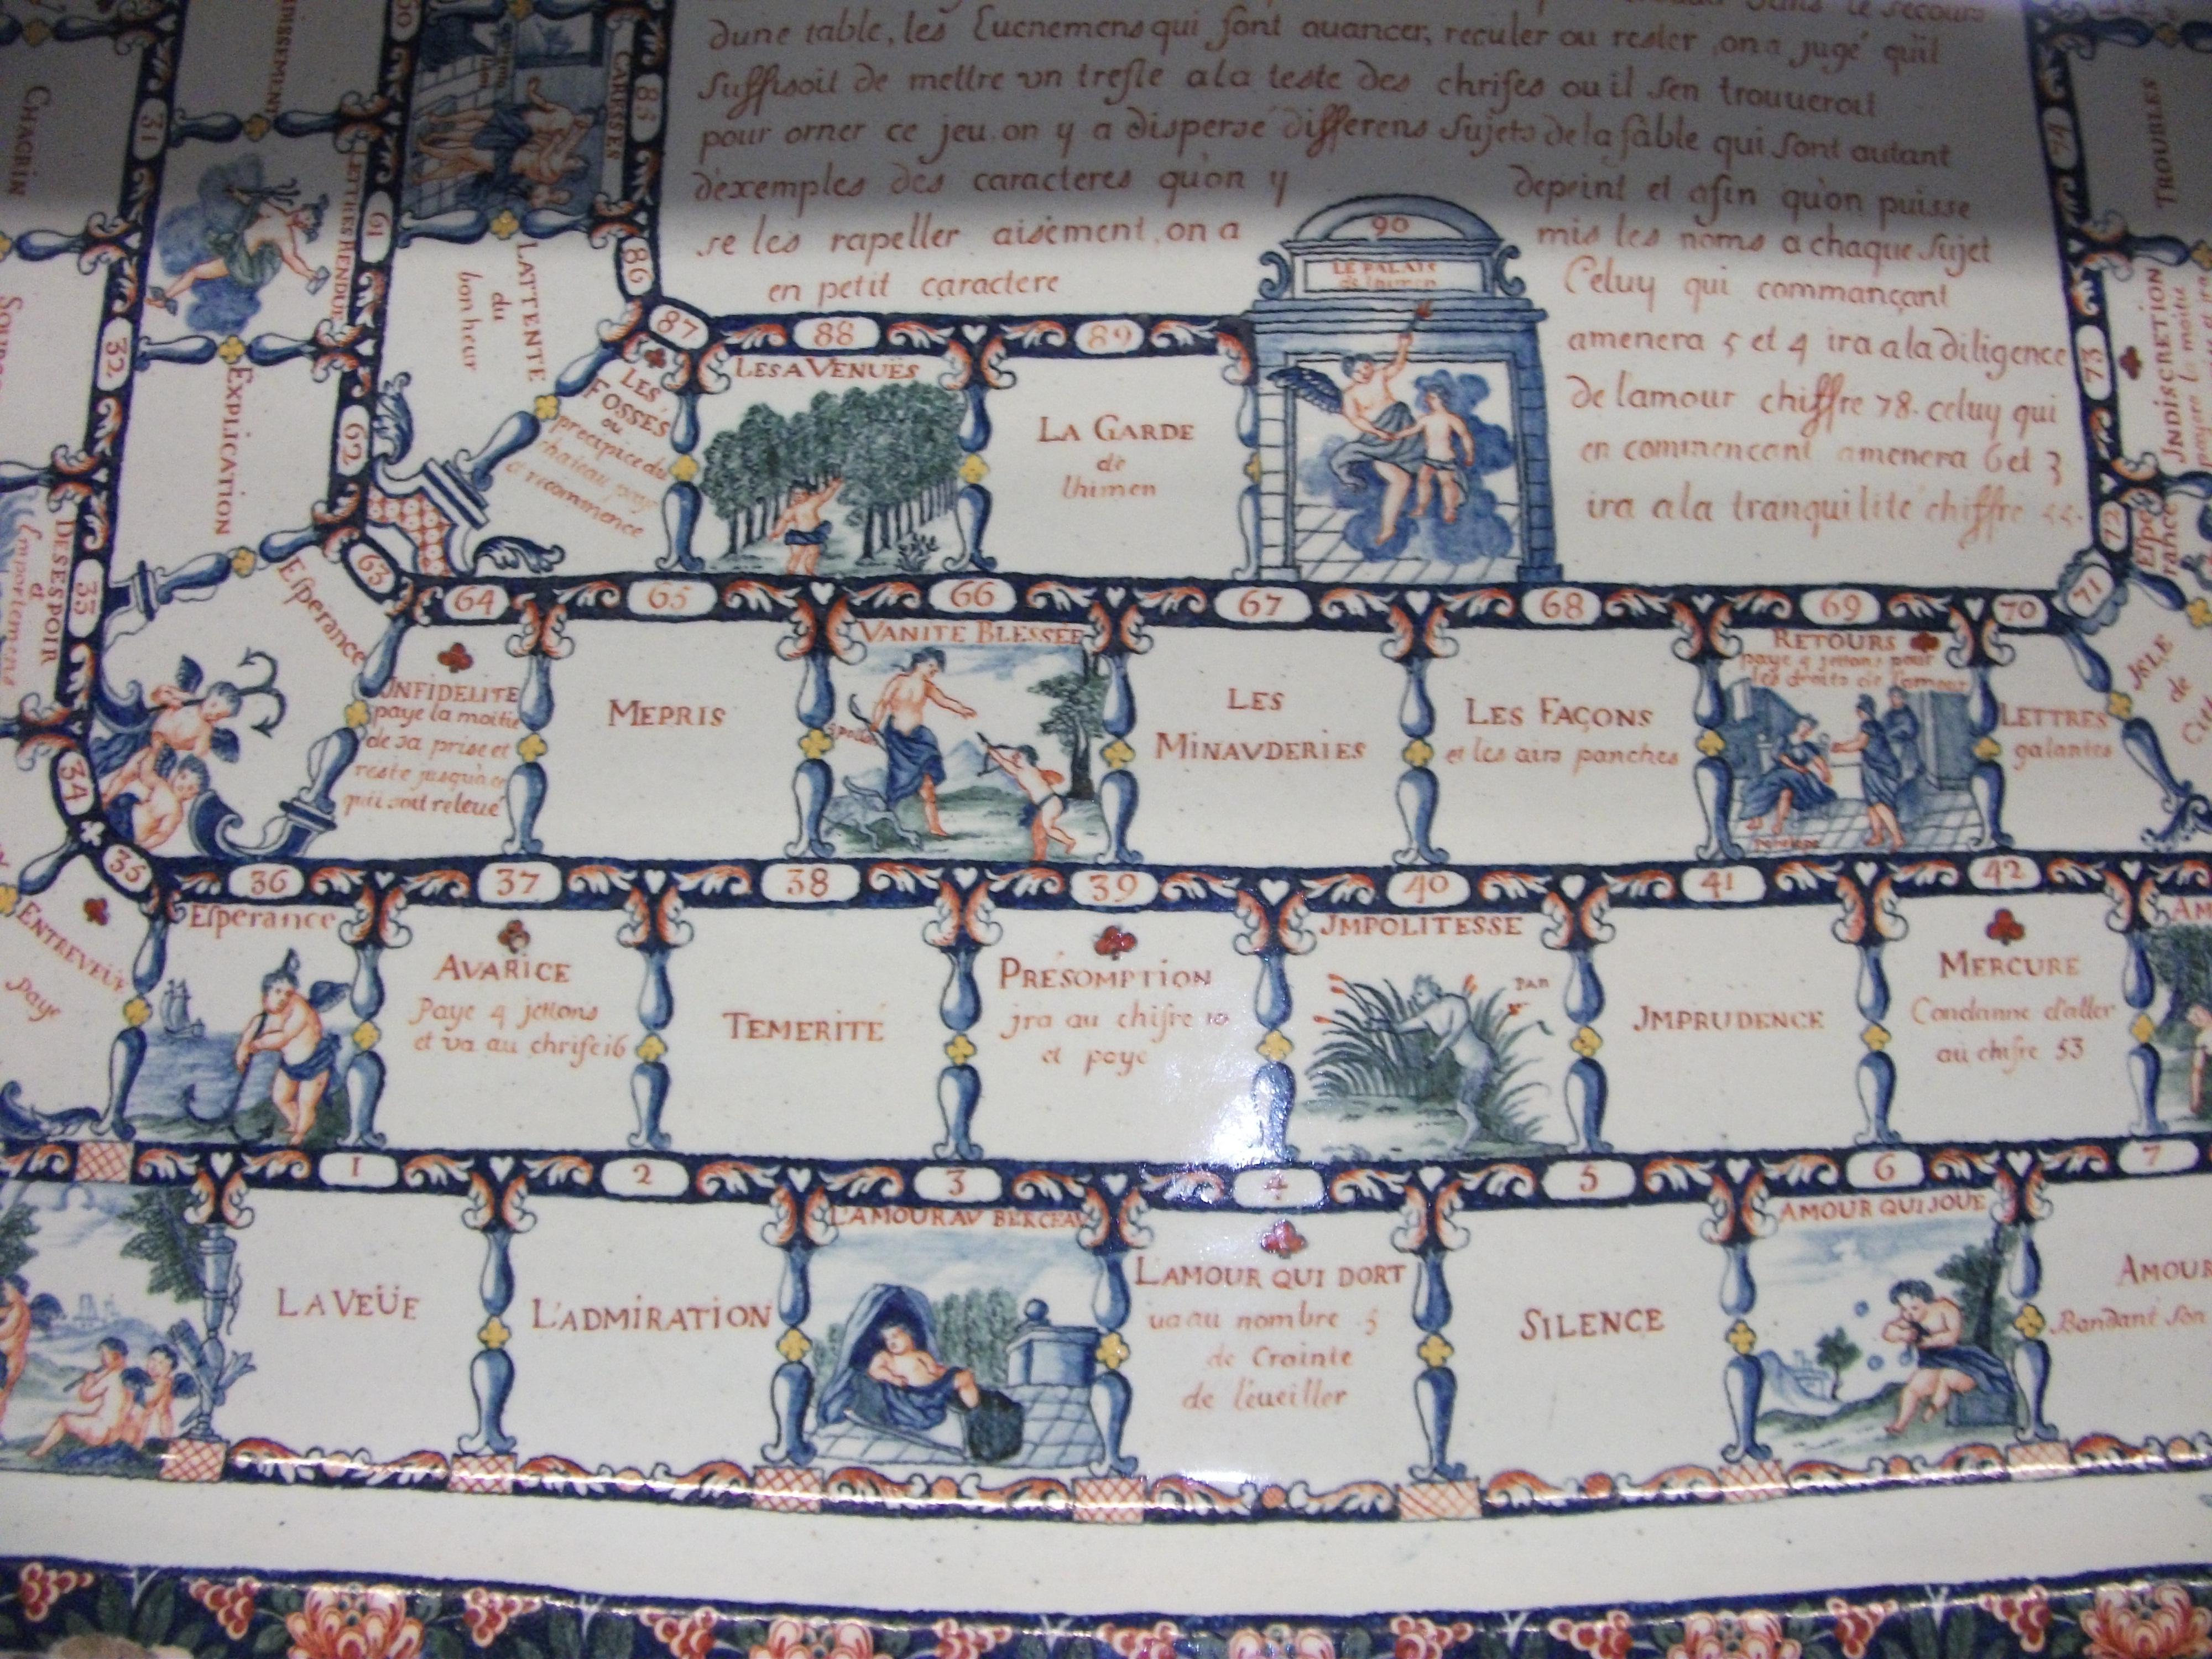 dune table, les Euenemens qui font auancer, reculer ou rester, on a jugé qu'il
suffisoit de mettre un trefle a la teste des chrifes ou il sen trouueroit
pour orner ce jeu. on y a dispersé differens sujets de la fable qui sont autant
d'exemples des caracteres qu'on y depeint et afin qu'on puisse
se les rapeller aisément, on a mis les noms a chaque sujet
en petit caractere
Celuy qui commançant
amenera 5 et 4 ira a la diligence
de l'amour chiffre 78. celuy qui
en commencant amenera 6 et 3
ira a la tranquilité chiffre
90
LE PALAIS
de l'himen
85
CARESSES
86
LATTENTE
du
bonheur
87
LES
FOSSÉS
ou
precipice du
chateau paye
et recommence
88
LES AVENUËS
89
LA GARDE
de
lhimen
74
TROUBLES
73
INDISCRETION
72
Espe
rance
71
ISLE
de
60
61
LETTRES RENDUE
62
EXPLICATION
63
Esperance
64
INFIDELITE
paye la moitie
de sa prise et
reste jusqu'a ce
qu'il soit releué
65
MEPRIS
66
VANITE BLESSÉE
Apollon
67
LES
MINAUDERIES
68
LES FAÇONS
et les airs panches
69
RETOURS
paye 4 jettons pour
les droits de l'amour
Penelope
70
LETTRES
galantes
31
CHAGRIN
32
33
DESESPOIR
et
Emportemens
34
35
ENTREVEÜE
Paye
36
Esperance
37
AVARICE
Paye 4 jettons
et va au chrife 16
38
TEMERITÉ
39
PRÉSOMPTION
jra au chifre 10
et paye
40
JMPOLITESSE
PAN
41
JMPRUDENCE
42
MERCURE
Condanne d'aller
au chifre 53
1
LA VEÜE
2
L'ADMIRATION
3
L'AMOUR AU BERCEAU
4
LAMOUR QUI DORT
ua au nombre 5
de Crainte
de l'eueiller
5
SILENCE
6
AMOUR QUI JOUE
7
AMOUR
Bandant son